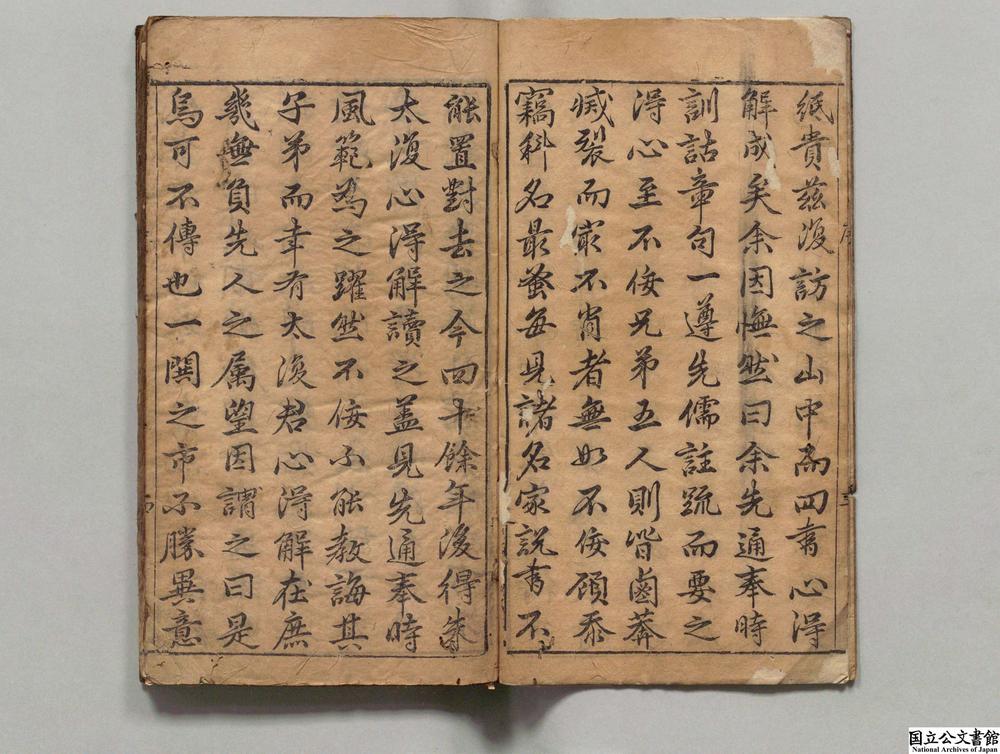 紙貴茲復訪之山中而四書心得
解成矣余因憮然曰余先通奉時
訓詁章句一遵先儒註疏而要之
得心至不佞兄弟五人則皆鹵莽
滅裂而最不肖者無如不佞顧忝
竊科名最蚤每見諸名家説書不
能置對去之今四十餘年後得朱
太復心得解讀之盖見先通奉時
風範為之躍然不佞不能教誨其
子弟而幸有太復君心得解在庶
幾無負先人之属望因謂之曰是
烏可不傳也一閧之市不勝異意
序
三
四
国立公文書館
National Archives of Japan